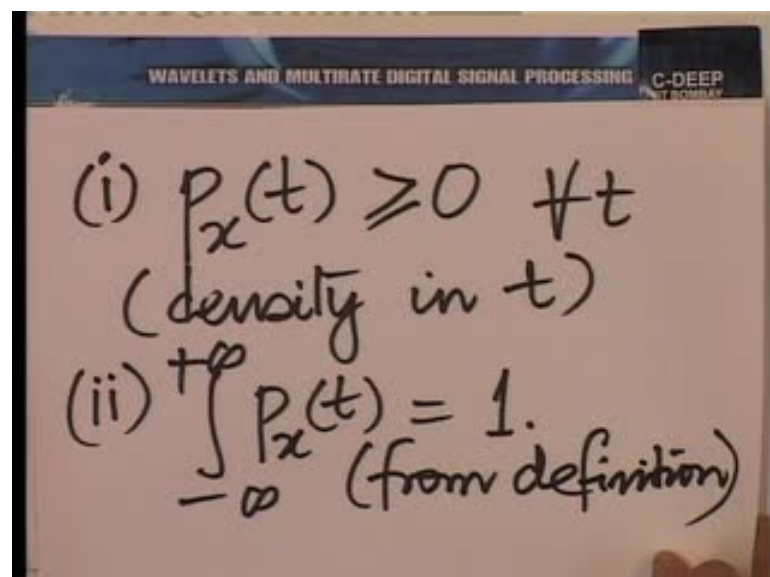 WAVELETS AND MULTIRATE DIGITAL SIGNAL PROCESSING
C-DEEP
IIT BOMBAY
(i) pₓ(t) ⩾ 0 ∀t
(density in t)
(ii) ∫₋∞⁺∞ pₓ(t) = 1.
(from definition)